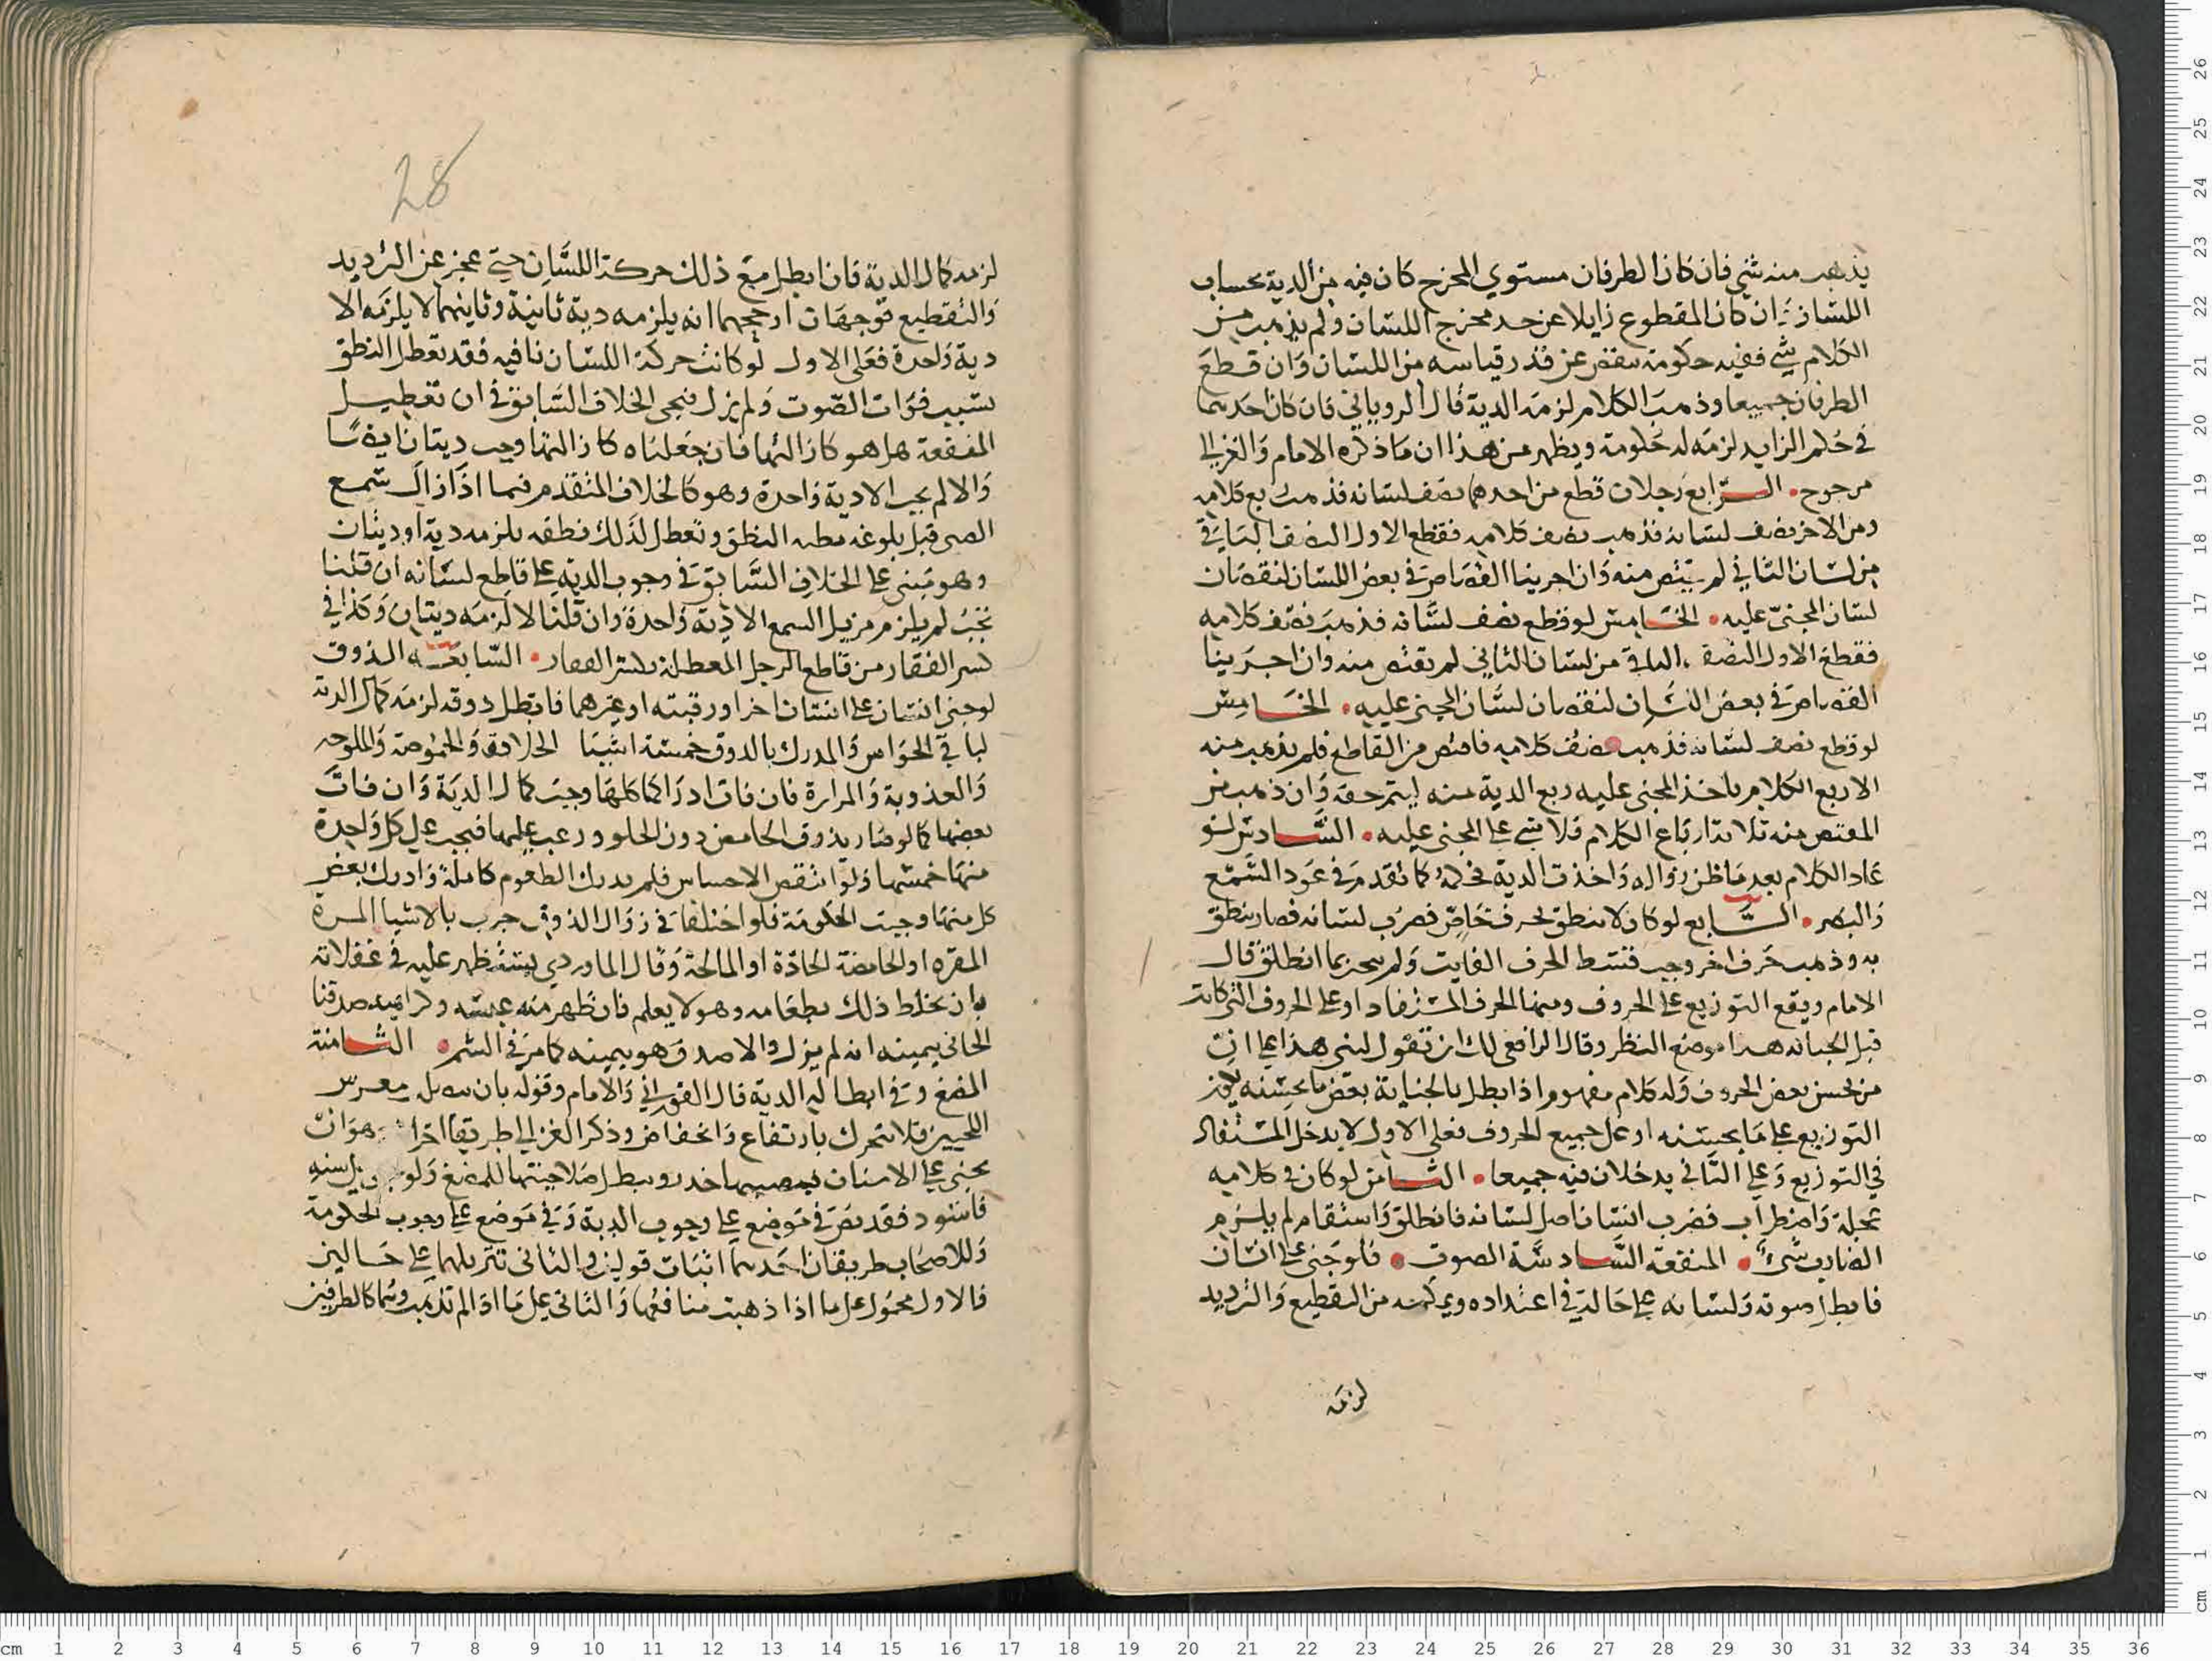 يذهب منه شي فان كان الطرفان مستوي المخرج كان فيه من الدية بحساب
اللسان وان كان المقطوع زايلا عن حد مخرج اللسان ولم يذهب من
الكلام شي ففيه حكومة تنقص عن قدر قياسه من اللسان وان قطع
الطرفان جميعا وذهب الكلام لزمه الدية قال الروياني فان كان احدهما
في حكم الزايد لزمه له حكومة ويظهر من هذا ان ما ذكره الامام والغزالي
مرجوح • الرابع رجلان قطع من احدهما نصف لسانه فذهب ربع كلامه
ومن الاخر نصف لسانه فذهب نصف كلامه فقطع الاول النصف الثاني
من لسان الثاني لم يقتص منه وان اجرينا القصاص في بعض اللسان لنقصان
لسان المجني عليه • الخامس لو قطع نصف لسانه فذهب نصف كلامه
فقطع الاول النصف الباقي من لسان الثاني لم يقتص منه وان اجرينا
القصاص في بعض اللسان لنقصان لسان المجني عليه • الخامس
لو قطع نصف لسانه فذهب نصف كلامه فاقتص من القاطع فلم يذهب منه
الا ربع الكلام ياخذ المجني عليه ربع الدية منه ليتم حقه وان ذهب من
المقتص منه ثلاثة ارباع الكلام فلا شي على المجني عليه • السادس لو
عاد الكلام بعد ما ظن زواله واخذت الدية فحكمه كما تقدم في عود السمع
والبصر • السابع لو كان لا ينطق بحرف خاص فضرب لسانه فصار ينطق
به وذهب حرف اخر وجب قسط الحرف الفايت ولم ينجبر بما انطلق قال
الامام ويقع التوزيع على الحروف ومنها الحرف المستفاد او على الحروف التي كانت
قبل الجنايه هذا موضع النظر وقال الرافعي لك ان تقول لبني هذا على ان
من يحسن بعض الحروف وله كلام مفهوم اذا بطل بالجناية بعض ما يحسنه يوزع
التوزيع على ما يحسنه او على جميع الحروف فعلى الاول لا يدخل المستفاد
في التوزيع وعلى الثاني يدخلان فيه جميعا • الثامن لو كان في كلامه
عجلة واضطراب فضرب انسان اصل لسانه فانطلق واستقام لم يلزم
الضارب شيء • المنفعة السادسة الصوت • فلو جنى على انسان
فابطل صوته ولسانه على حالة في اعتداده ويمكنه من التقطيع والترديد
لزمه
28
لزمه كمال الدية فان ابطل مع ذلك حركة اللسان حتى عجز عن الترديد
والتقطيع فوجهان ارجحهما انه يلزمه دية ثانية وثانيهما لا يلزمه الا
دية واحدة فعلى الاول لو كانت حركة اللسان باقيه فقد تعطل النطق
بسبب فوات الصوت ولم يزل فيجي الخلاف السابق في ان تعطيل
المنفعة هل هو كازالتها فان جعلناه كازالتها وجب ديتان ايضا
والا لم يجب الا دية واحدة وهو كالخلاف المتقدم فيما اذا ازال سمع
الصبي قبل بلوغه النطق وتعطل لذلك نطقه يلزمه دية او ديتان
وهو مبني على الخلاف السابق في وجوب الديه على قاطع لسانه ان قلنا
تجب لم يلزم مزيل السمع الا دية واحدة وان قلنا لا لزمه ديتان وكذا في
كسر الفقار من قاطع الرجل المعطلة بكسر الفقار • السابعة الذوق
لو جنى انسان على لسان اخر او رقبته او غيرهما فابطل ذوقه لزمه كمال الدية
لباقي الحواس والمدرك بالذوق خمسة اشيا الحلاوة والحموضة والملوحه
والعذوبة والمرارة فان فات ادراكها كلها وجبت كمال الدية وان فات
بعضها كما لو صار يذوق الحامض دون الحلو وزعت عليها فيجب على كل واحدة
منها خمسها ولو انتقص الاحساس فلم يدرك الطعوم كاملة وادرك بعض
كل منها وجبت الحكومة فلو اختلفا في زوال الذوق جرب بالاشيا المرة
المقره او الحامضة الحاذة او المالحة وقال الماوردي يستظهر عليه في غفلاته
بان يخلط ذلك بطعامه وهو لا يعلم فان ظهر منه عبسه وكراهيه صدقنا
الجاني بيمينه انه لم يزل والا صدق هو بيمينه كما مر في الشم • الثامنة
المضغ وفي ابطاله الدية قال الفوراني والامام وقوله بان
اللحيين فلا تتحرك بارتفاع وانخفاض وذكر الغزالي طريقا اخرا وهو ان
يجني على الاسنان فيصيبها خدر ويبطل صلاحيتها للمضغ ولو سنه
فاسود فقد نص في موضع على وجوب الدية وفي موضع على وجوب الحكومة
وللاصحاب طريقان احدهما اثبات قولين والثاني تنزيلهما على حالين
فالاول محمول على ما اذا ذهبت منافعها والثاني على ما اذا لم تذهب وسما كالطرفين